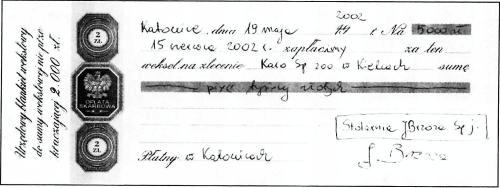 Urzędowy blankiet wekslowy
do sumy wekslowej nie prze-
kraczającej 2.000 zł.
2
ZŁ
OPŁATA
SKARBOWA
2
ZŁ
2002
Katowice, dnia 19 maja 19 r. Na 5000 zł
15 czerwca 2002 r. zapłacimy za ten
weksel na zlecenie Sp zoo w Kielcach sumę
pięć tysięcy złotych
Stolarnia JBrzoza Sp j.
J. Brzoza
Płatny w Katowicach